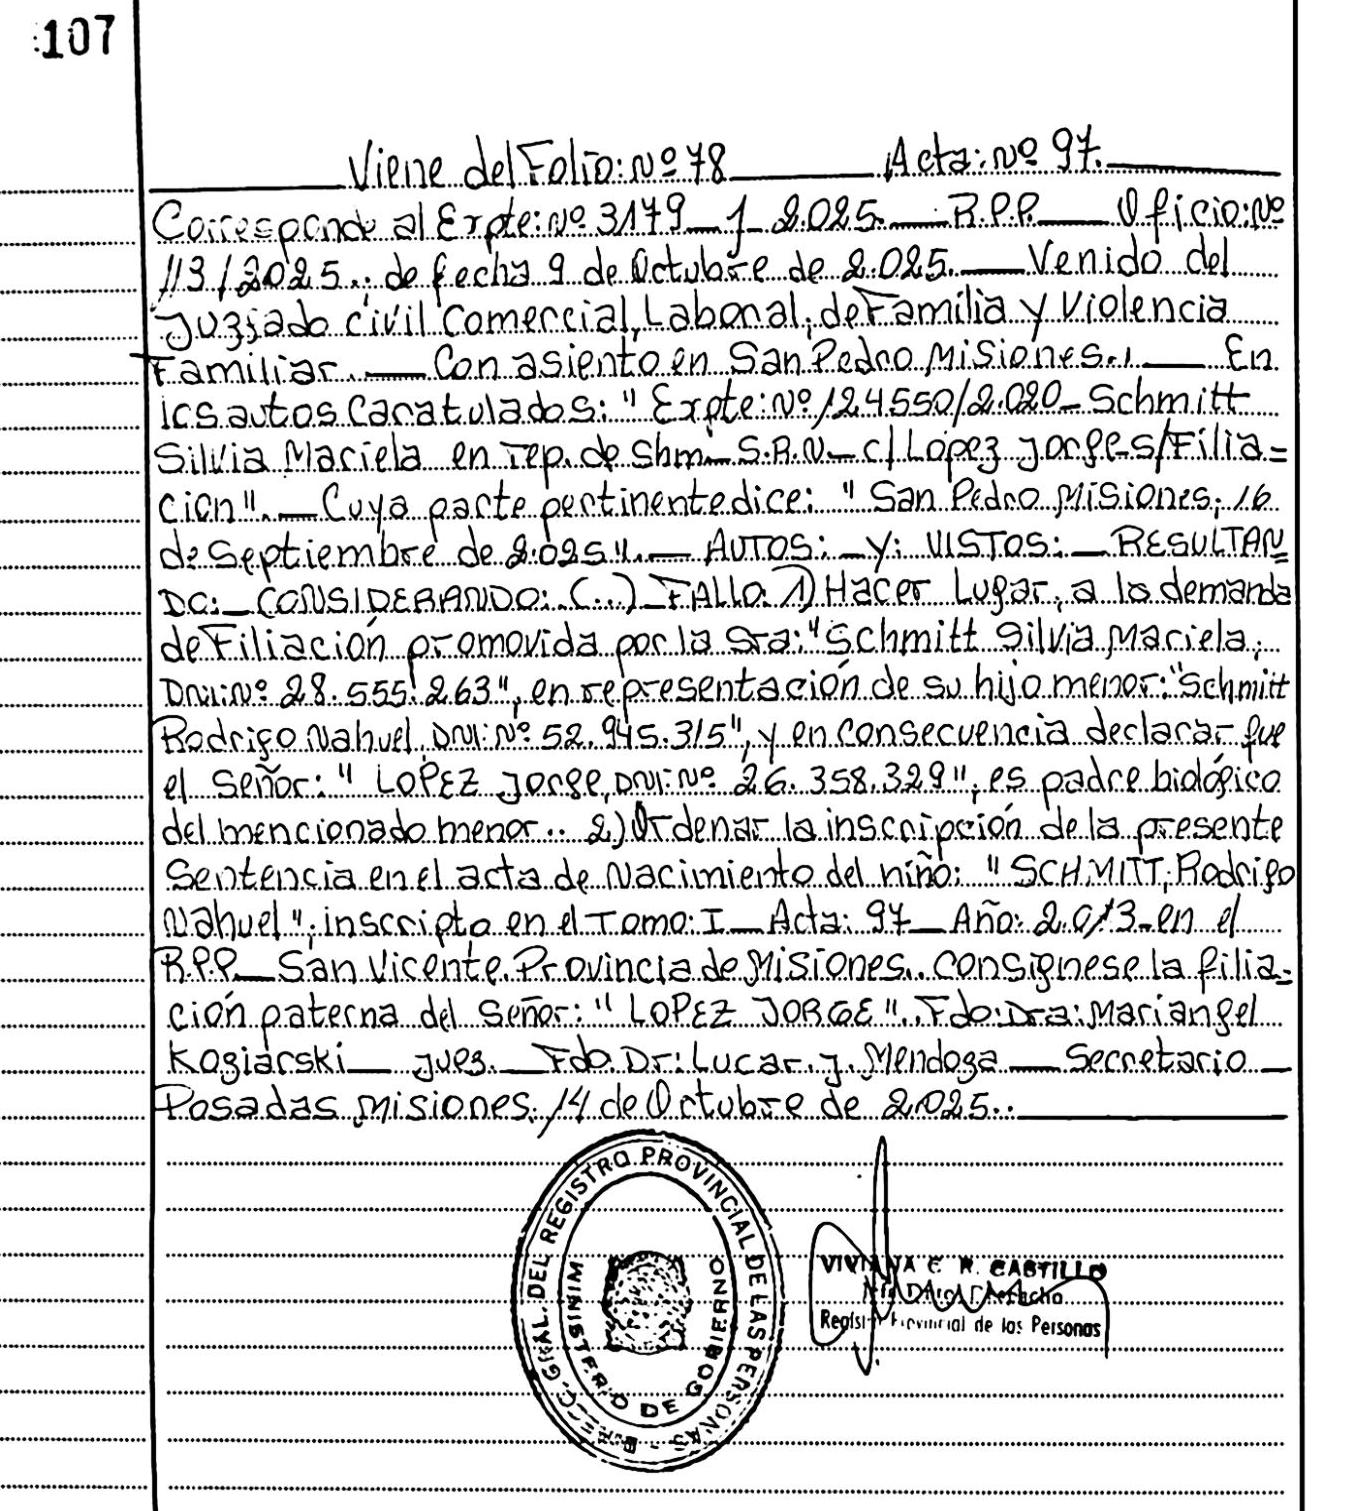 107
Viene del Folio: Nº 78 Acta: Nº 97.
Corresponde al Expte: Nº 3179 J 2.025. R.P.P. Oficio: Nº
113/2025.. de fecha 9 de Octubre de 2.025. Venido del
Juzgado civil Comercial, Laboral, de Familia y Violencia
Familiar. Con asiento en San Pedro Misiones.. En
los autos Caratulados: "Expte: Nº 124550/2.020_ Schmitt
Silvia Mariela en rep. de Shm_ S.R.N_ c/ Lopez Jorge_s/Filia=
cion". Cuya parte pertinente dice: "San Pedro Misiones, 16
de Septiembre de 2.025". AUTOS: Y: VISTOS: RESULTAN
DO: CONSIDERANDO: (...) FALLO: 1) Hacer Lugar, a la demanda
de Filiación promovida por la Sra: "Schmitt Silvia Mariela,
DNI: Nº 28.555.263", en representación de su hijo menor: "Schmitt
Rodrigo Nahuel, DNI: Nº 52.945.315", y en consecuencia declarar que
el Señor: "LOPEZ Jorge, DNI: Nº 26.358.329", es padre biológico
del mencionado menor.. 2) Ordenar la inscripción de la presente
Sentencia en el acta de Nacimiento del niño: "SCHMITT, Rodrigo
Nahuel", inscripto en el Tomo: I_ Acta: 97_ Año: 2.013_ en el
R.P.P_ San Vicente, Provincia de Misiones.. Consignese la filia=
ción paterna del Señor: "LOPEZ JORGE".. Fdo: Dra: Mariangel
Koziarski Juez. Fdo. Dr: Lucar. J. Mendoza Secretario
Posadas Misiones, 14 de Octubre de 2.025..
GRAL. DEL REGISTRO PROVINCIAL DE LAS PERSONAS
MINISTERIO DE GOBIERNO
VIVIANA E. R. CASTILLO
Registro Provincial de las Personas